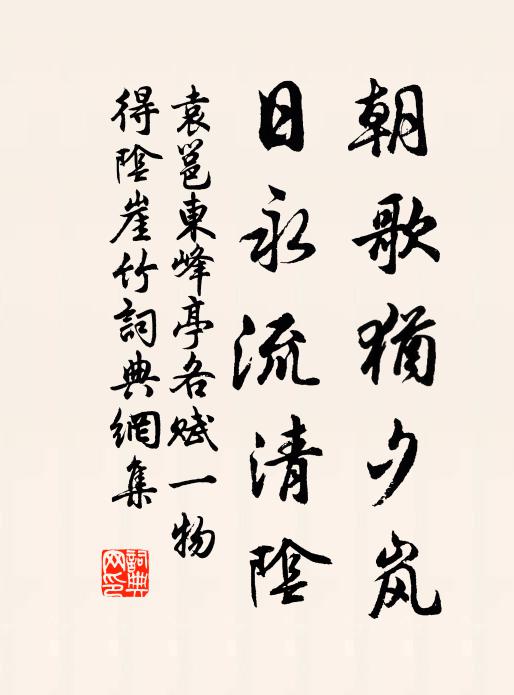 朝歌猶夕岚
日永流清陰
袁邕東峰亭各赋一物
得陰崖竹詞典網集
詞典网印